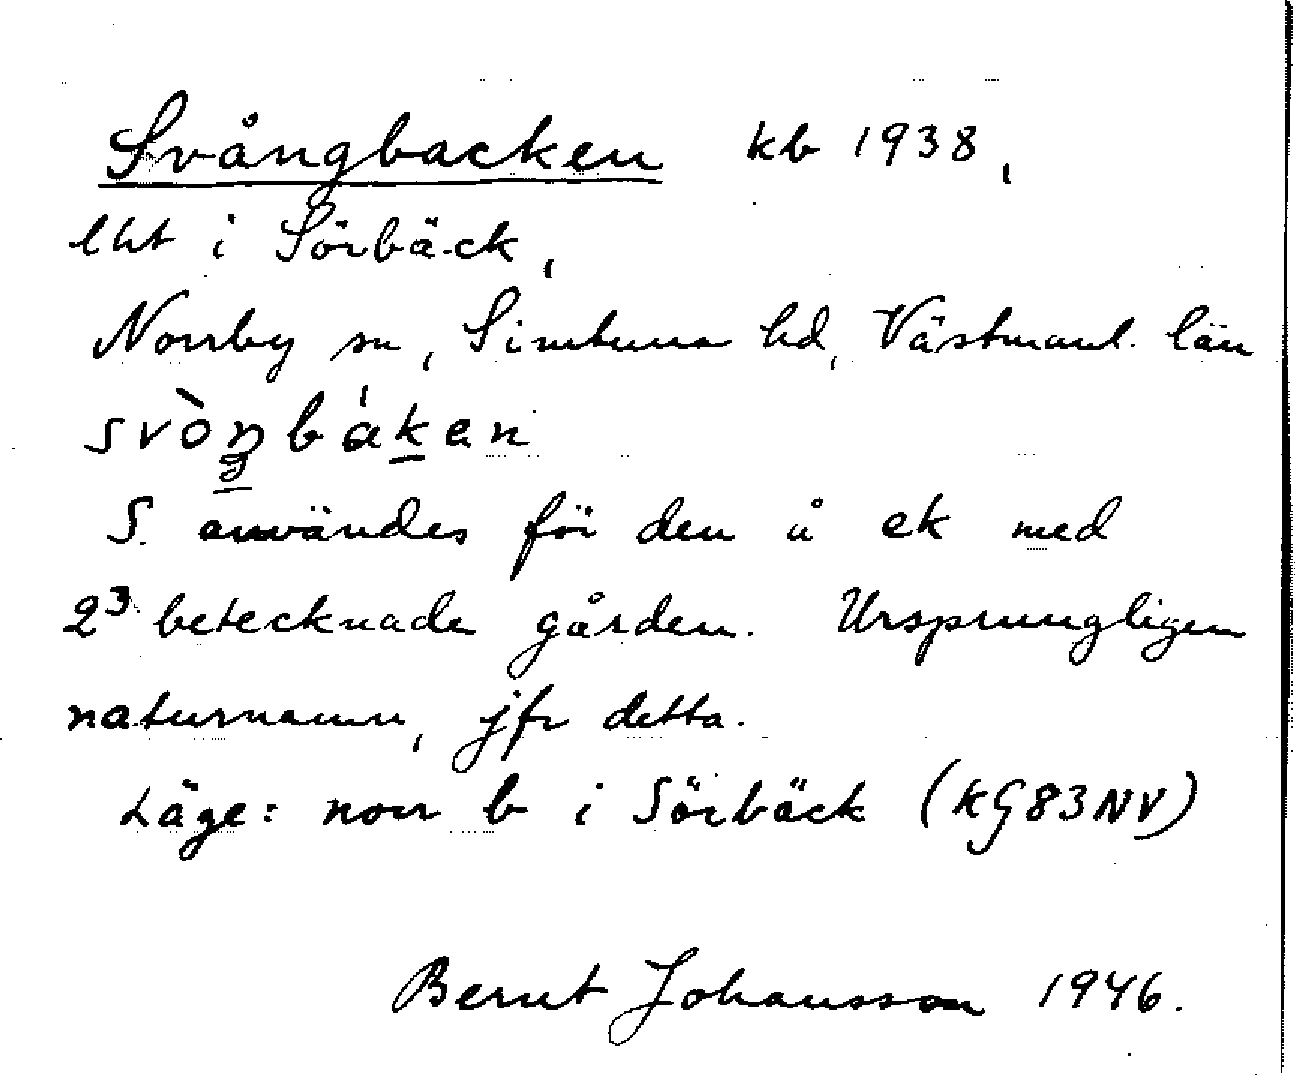 Svångbacken kb 1938,
lht i Sörbäck,
Norrby sn, Simtuna hd, Västmanl. län
svòŋbákan
S. användes för den å ek med
2³ betecknade gården. Ursprungligen
naturnamn, jfr detta.
Läge: norr b i Sörbäck (kG83NV)
Bernt Johansson 1946.